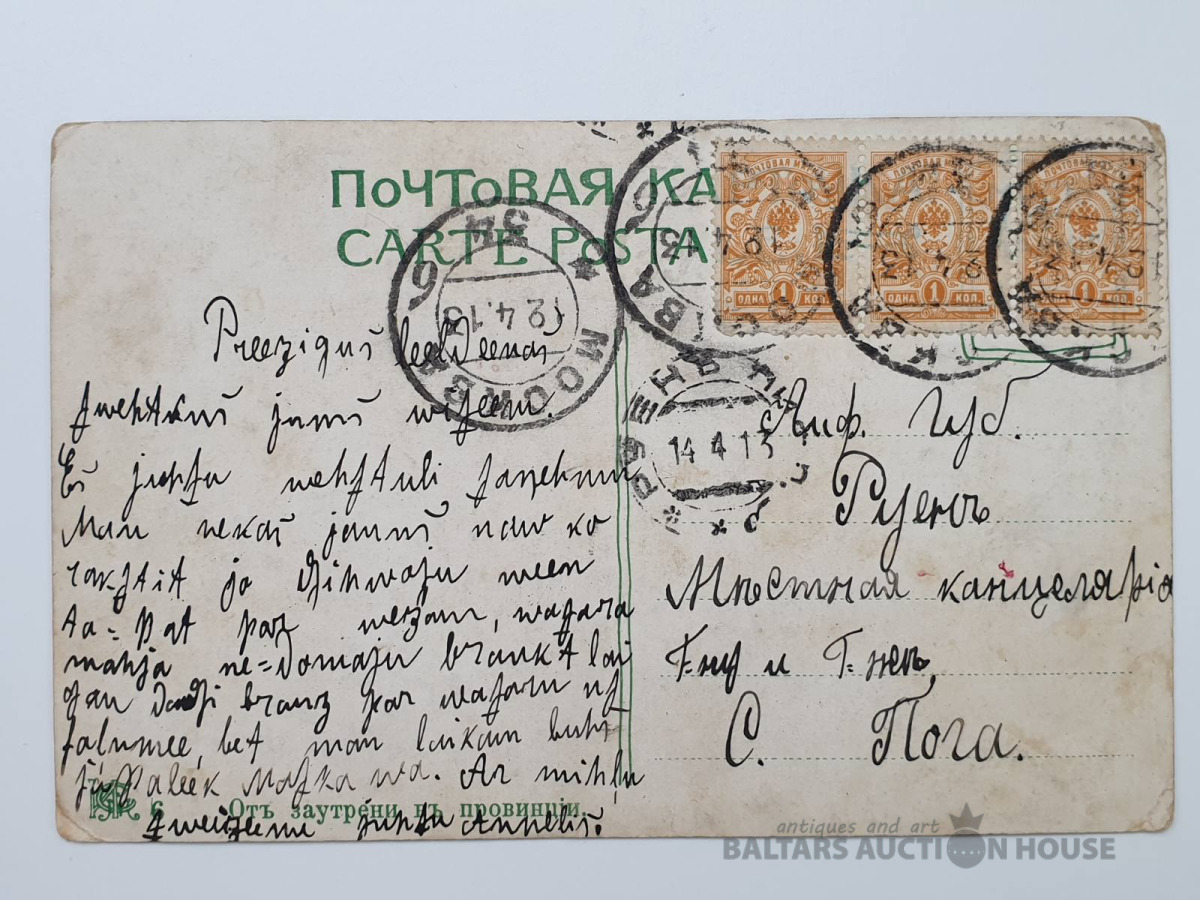 ПОЧТОВАЯ КА
CARTE POSTA
МОСКВА
6
12.4.13
19.4.13
14 4 13
ПОЧТОВАЯ МАРКА
ОДНА 1 КОП.
ОДНА 1 КОП.
ОДНА 1 КОП.
Preezigus leeldeenas
swehtkus jums wiseem.
Es juhsu wehstuli saņehmu
Man nekas jauns naw ko
rakstit jo dsihwoju ween
ta=pat par wezam, wasara
mahja ne=domaju braukt lai
gan daudsi brauz par wasaru us
falumee, bet man laikam buhs
ja paleek Maskawa. Ar mihļu
sweizeenu juhsu Annelis.
Лиф. Губ.
Руенъ
Мѣстная канцелярія
Г-ну и Г-жѣ,
С. Пога.
6 Отъ заутрени въ провинціи.
antiques and art
BALTARS AUCTION HOUSE